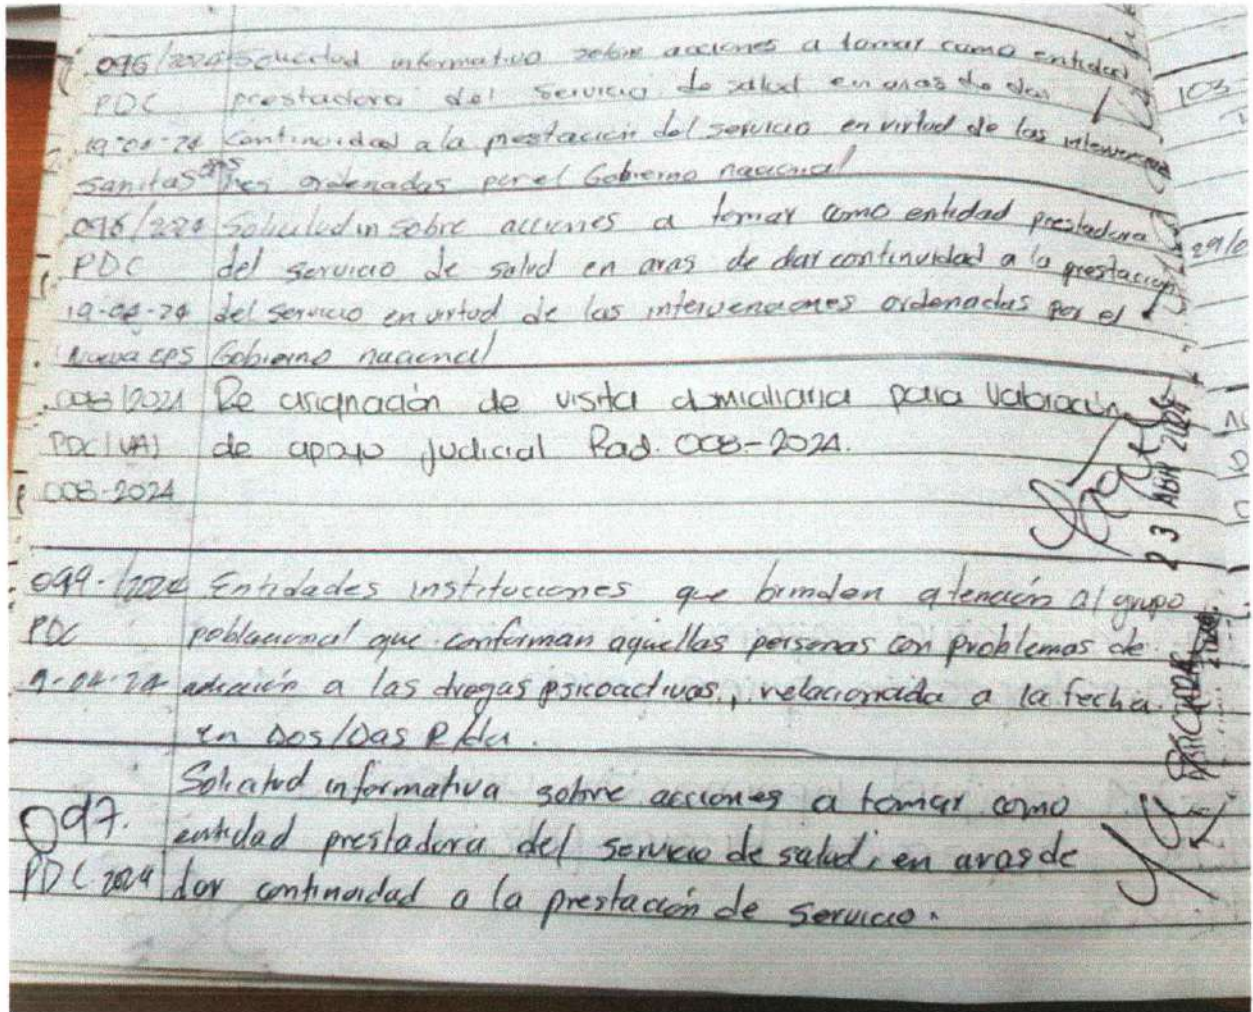 096/2024 Solicitud informativa sobre acciones a tomar como entidad
PDC prestadora del servicio de salud en aras de dar
19-04-24 Continuidad a la prestación del servicio en virtud de las
sanitas EPS ordenadas por el Gobierno nacional
Solicitud in sobre acciones a tomar como entidad prestadora
PDC del servicio de salud en aras de dar continuidad a la prestación
19-04-24 del servicio en virtud de las intervenciones ordenadas por el
Nueva EPS Gobierno nacional
008/2024 Re asignación de visita domiciliaria para Valoración
PDC(VA) de apoyo judicial Rad. 008-2024.
008-2024
23 ABR 2024
099-/2024 Entidades instituciones que brinden atención al grupo
PDC poblacional que conforman aquellas personas con problemas de
9-04-24 adicción a las drogas psicoactivas, relacionada a la fecha.
en Dos/Das
Solicitud informativa sobre acciones a tomar como
097. entidad prestadora del servicio de salud, en aras de
PDC 2024 dar continuidad a la prestación de servicio.
103